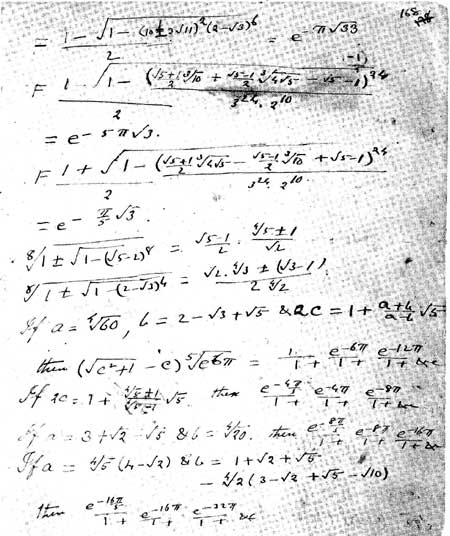 = 1 - √1 - (10 + 3√11)² (2 - √3)⁶ / 2 = e^-π√33
F 1 - √1 - (√5+1/2 ∛10 + √5-1/2 ∛4√5 - √5 - 1)²⁴ / 3²⁴·2¹⁰ / 2
= e^-5π√3.
F 1 + √1 - (√5+1/2 ∛4√5 - √5-1/2 ∛10 + √5-1)²⁴ / 3²⁴·2¹⁰ / 2
= e^-π/5 √3.
⁸√1 ± √1-(√5-2)⁸ = √5-1/2 · ⁴√5 ± 1/√2
⁸√1 ± √1-(2-√3)⁴ = √2·⁴√3 ± (√3-1)/2 ⁴√2
If a = ⁴√60, b = 2 - √3 + √5 & 2c = 1 + a+b/a-b √5
then (√c²+1 - c) ⁵√e⁶π = 1/1 + e^-6π/1 + e^-12π/1 + &c
If 2c = 1 + ⁴√5+1/⁴√5-1 √5 then e^-4π/5/1 + e^-4π/1 + e^-8π/1 + &c
If a = 3 + √2 - √5 & b = ⁴√20. then e^-8π/5/1 + e^-8π/1 + e^-16π/1 + &c
If a = ⁴√5 (4-√2) & b = 1 + √2 + √5
- ⁴√2 (3 - √2 + √5 - √10)
then e^-16π/5/1 + e^-16π/1 + e^-32π/1 + &c